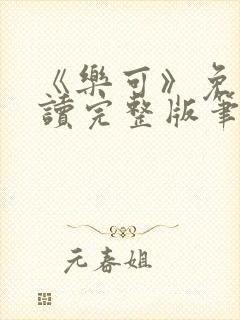 《樂可》免
讀完整版筆
元春姐